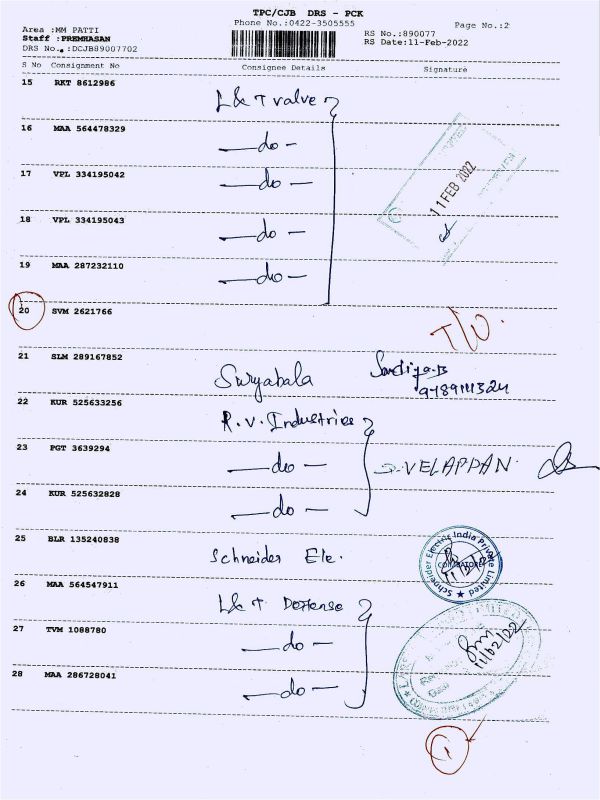 TPC/CJB DRS - PCK
Phone No.:0422-3505555
Page No.:2
Area :MM PATTI
Staff :PREMHASAN
DRS No.:DCJB89007702
RS No.:890077
RS Date:11-Feb-2022
S No Consignment No Consignee Details Signature
15 RKT 8612986
L& T valve
16 MAA 564478329
—do—
17 VPL 334195042
—do—
18 VPL 334195043
—do—
19 MAA 287232110
—do—
11 FEB 2022
20 SVM 2621766
T/W.
21 SLM 289167852
Suryabala
9789111324
22 KUR 525633256
R.V. Industries
23 PGT 3639294
—do—
VELAPPAN
24 KUR 525632828
—do—
25 BLR 135240838
Schneider Ele.
Schneider Electric India Private Limited
COIMBATORE
26 MAA 564547911
L& T Defense
11/02/22
27 TVM 1088780
—do—
28 MAA 286728041
—do—
1